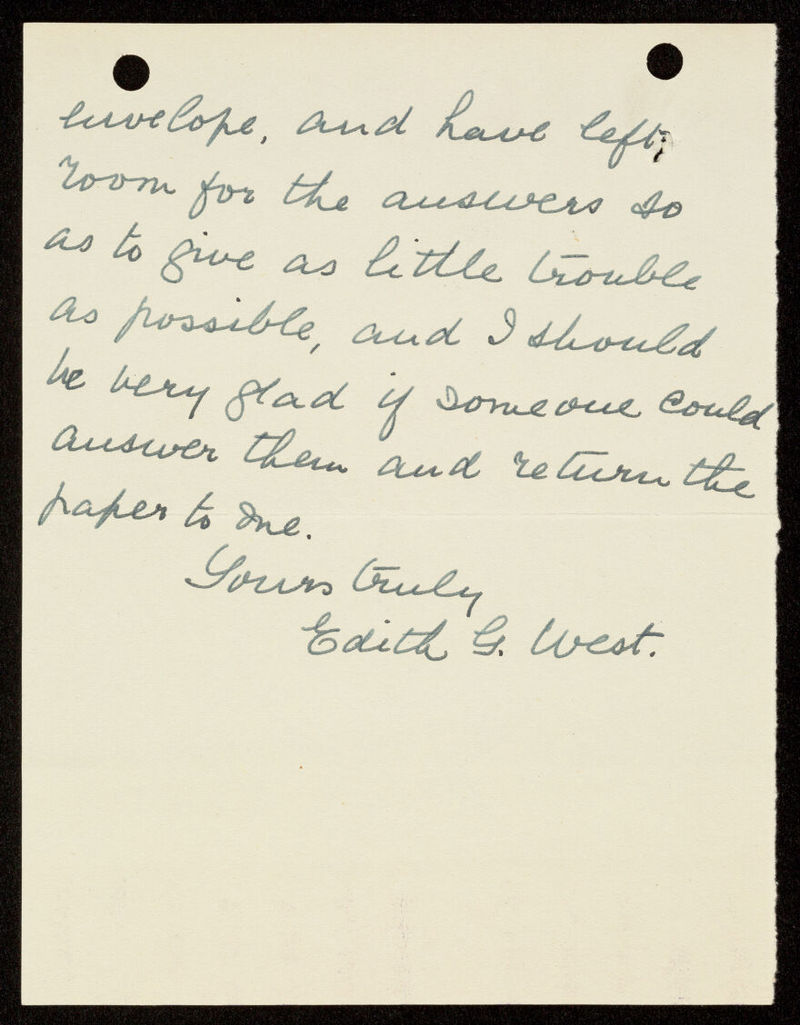 envelope, and have left
room for the answers so
as to give as little trouble
as possible, and I should
be very glad if someone could
answer them and return the
paper to me.
Yours truly
Edith G. West.